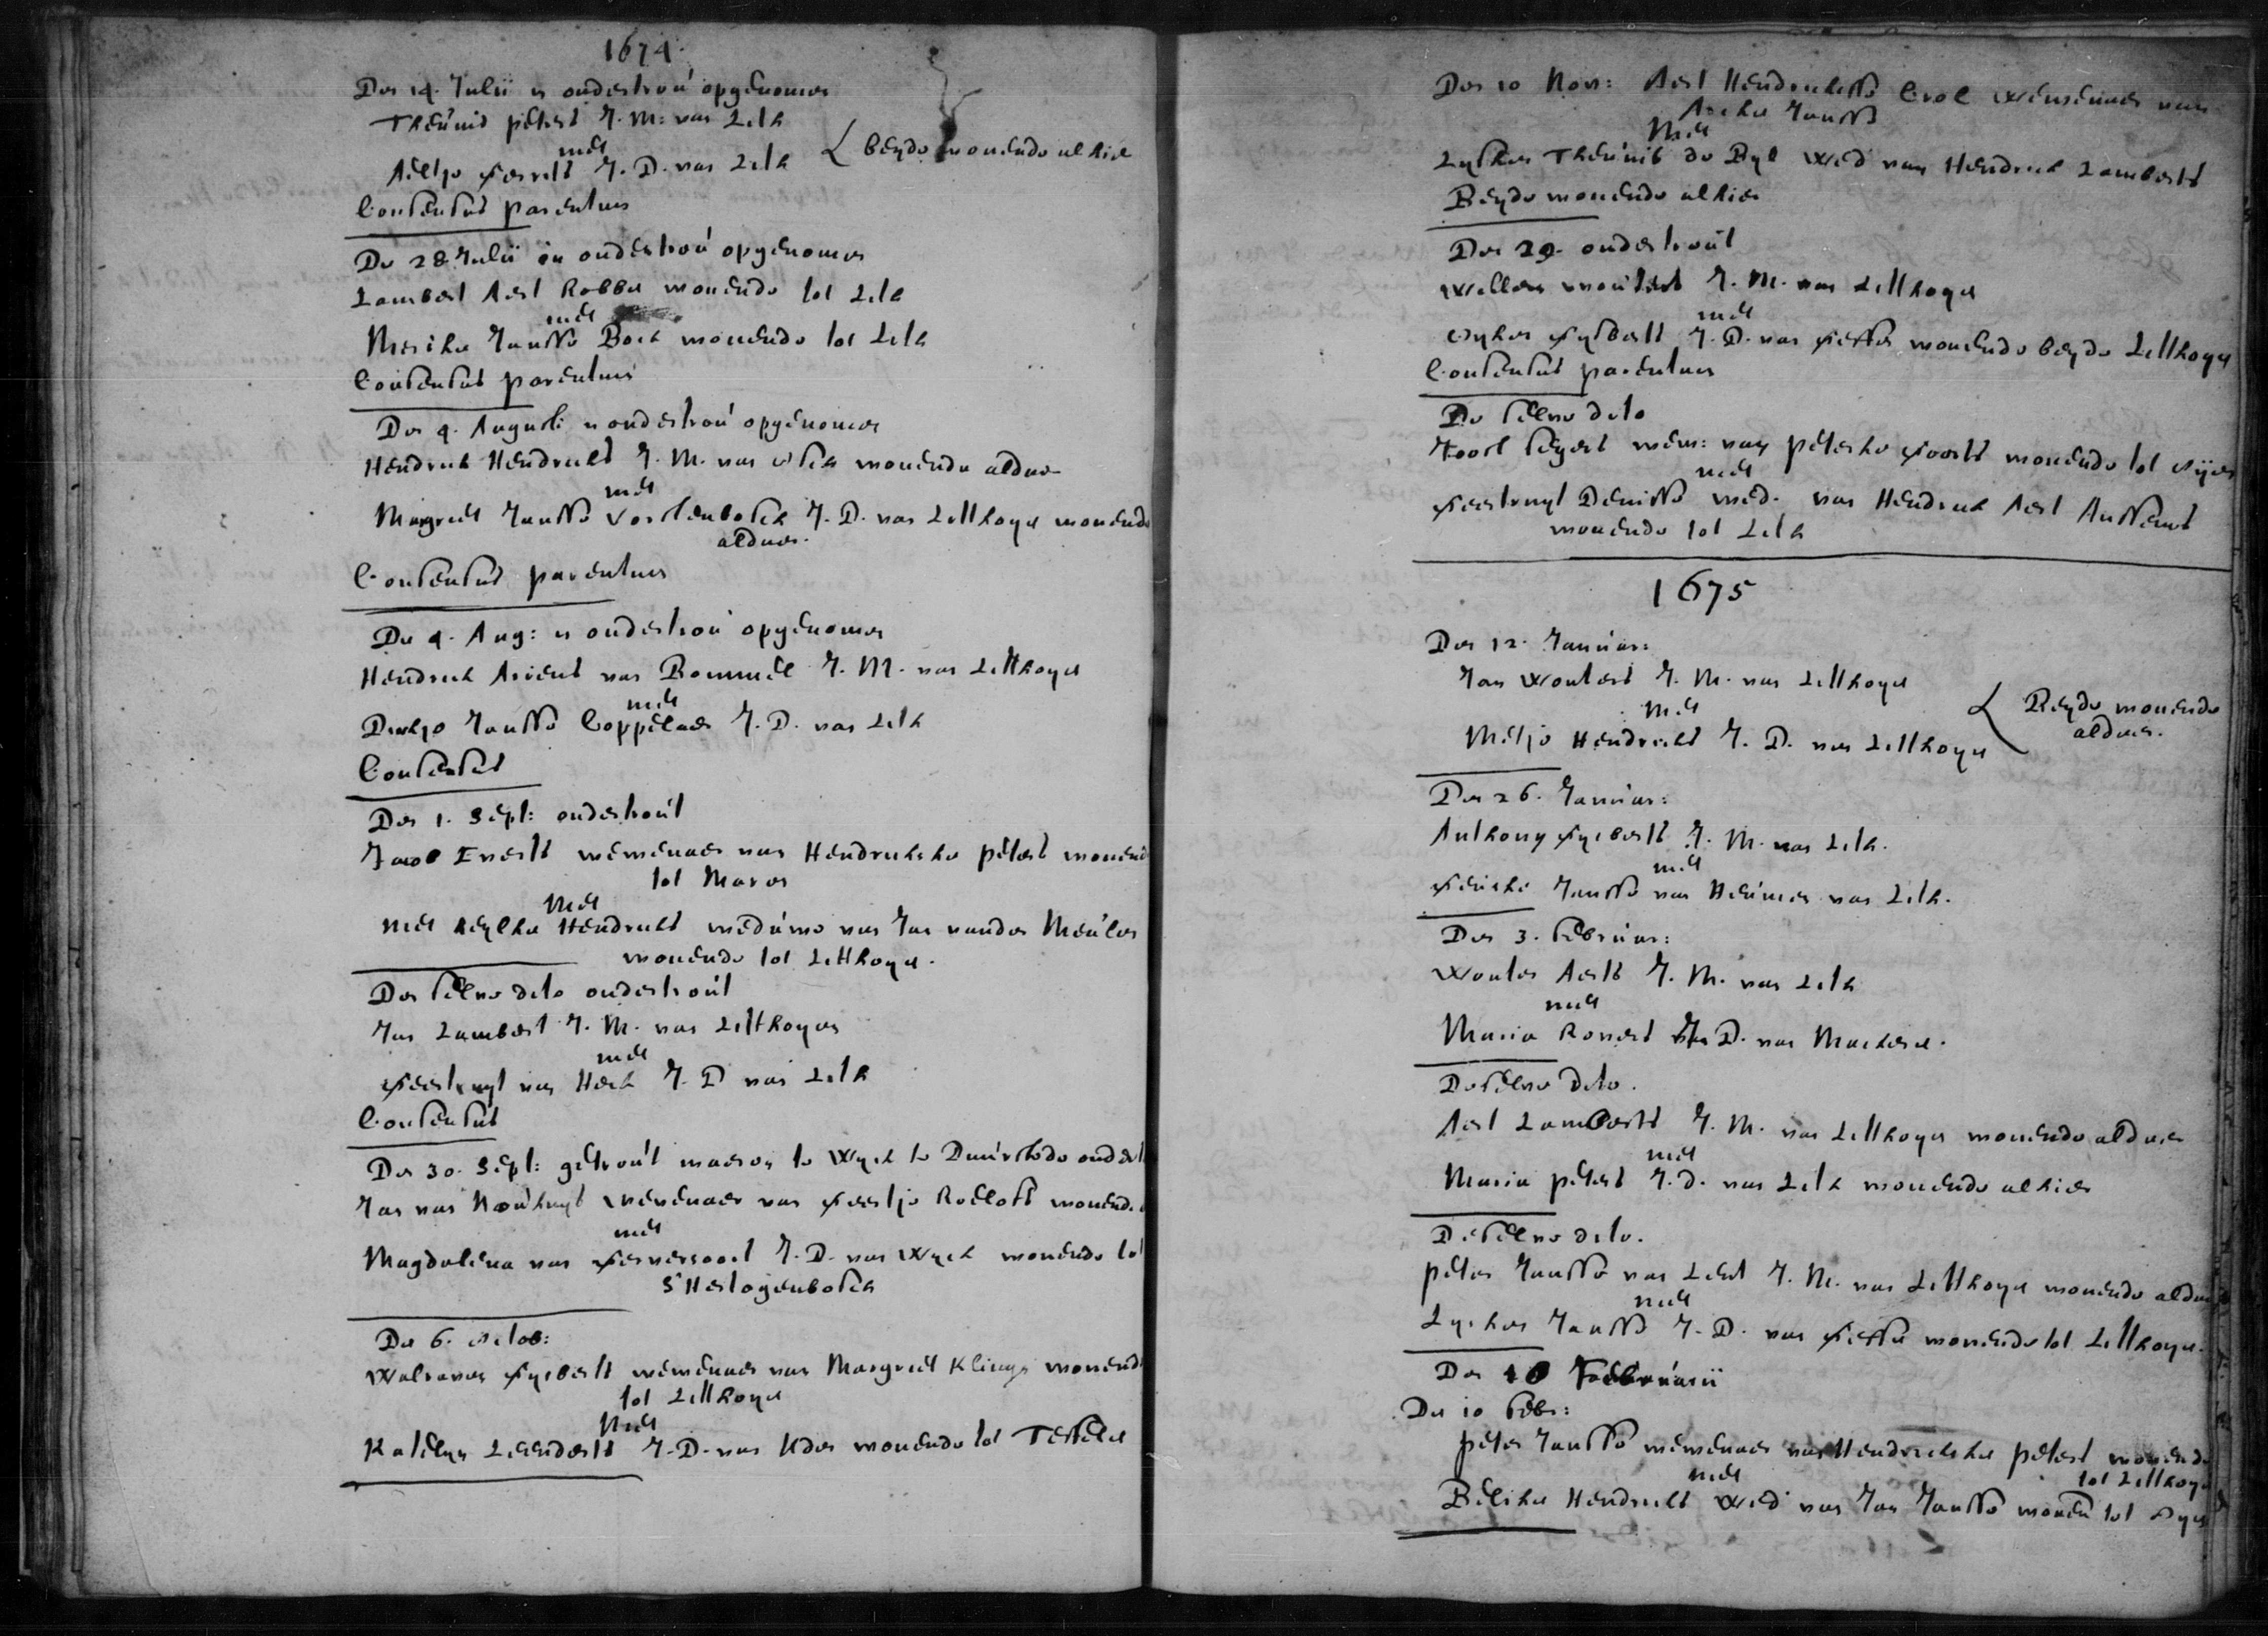 1674
Den 14. Julii in ondertrou opgenomen
Theunis peters J. M: van Lith
met
Aeltje Gerrits J. D. van Lith
beyde wonende alhier
Consensus parentum
De 28 Julii in ondertrou opgenomen
Lambert Aert Robben wonende tot Lith
met
Merike Jansse Bock wonende tot Lith
Consensus parentum
Den 4. Augusti in ondertrou opgenomen
Hendrick Hendricks J. M. van wonende aldaer
met
Margriet Jansse Vorstenbosch J. D. van Litthoyen wonende
aldaer.
Consensus parentum
De 4. Aug: in ondertrou opgenomen
Hendrick Ariens van Bommel J. M. van Litthoyen
met
Dirckje Jansse Coppelaer J. D. van Lith
Consensus
Den 1. Sept: ondertrout
Jacob Everts wewenaer van Hendrickske peters wonend
tot Maren
Met
met Aeylke Hendricks weduwe van Jan vander Meulen
wonende tot Litthoyen.
Den selve dito ondertrout
Jan Lambert J. M. van Litthoyen
met
Geertruyt van Heck J. D van Lith
Consensus
Den 30. Sept: getrout te Wyck te Duurstede
Jan van Nouhuys wewenaer van Geertje Roelofs wonende
met
Magdalena van J. D. van Wyck wonende tot
S'Hertogenbosch
De 6. Octob:
Walraven Gysberts wewenaer van Margriet Klings wonend
tot Litthoyen
Met
Katelyn Leenderts J. D. van Uden wonende tot Teffelen
Den 10 Nov: Aert Hendrickse Crol wewenaer van
Aerke Jansse
Met
Lysken Theunis de Byl Wed van Hendrick Lamberts
Beyde wonende alhier
Den 29. ondertrout
Willem wouters J. M. van Litthoyen
met
Gysberts J. D. van Geffen wonende beyde Litthoyen
Consensus parentum
De selve dito
Joost Segers wew: van peterke Goorts wonende tot Oijen
met
Geertruyt Denisse wed. van Hendrick Aert Aussems
wonende tot Lith
1675
Den 12. Januar:
Jan Wouters J. M. van Litthoyen
Met
Metje Hendricks J. D. van Litthoyen
Beyde wonende
aldaer.
Den 26. Januar:
Anthony Gysberts J. M. van Lith.
met
Jansse van Heumen van Lith.
Den 3. Februar:
Wouter Aerts J. M. van Lith
met
Maria Rovers J. D. van Macheren.
De selve Dito.
Aert Lamberts J. M. van Litthoyen wonende aldaer
met
Maria peters J. D. van Lith wonende alhier
De selve dito.
peter Jansse van Lent J. M. van Litthoyen wonende aldaer
met
Lysken Jansse J. D. van Geffen wonende tot Litthoyen.
Den 10 Februarii
De 10 Febr:
peter Jansse wewenaer van Hendrickske peters wonende
tot Litthoyen
met
Beliken Hendricks Wed van Jan Jansse wonen tot Oyen